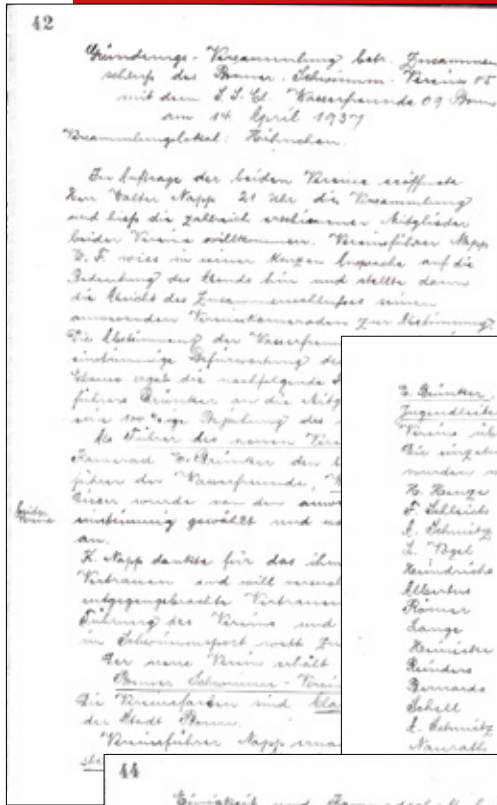 42
Gründungs-Versammlung betr. Zusammen-
schluß des Bonner-Schwimm-Vereins 05
mit dem S.S.Cl. Wasserfreunde 09 Bonn
am 14. April 1937
Versammlungslokal: Hähnchen.
Im Auftrage der beiden Vereine eröffnete
Herr Walter Napp 21 Uhr die Versammlung
und hieß die zahlreich erschienenen Mitglieder
beider Vereine willkommen. Vereinsführer Napp
W.F. wies in seiner kurzen Ansprache auf die
Bedeutung des Abends hin und stellte dann
die Absicht des Zusammenschlusses seinen
anwesenden Vereinskameraden zur Abstimmung
Die Abstimmung der Wasserfreun
einstimmige Befürwortung de
Ebenso ergab die nachfolgende
führers Brünker an die Mitg
eine 100%ige Bejahung des
Als Führer des neuen Vere
Kamerad E. Brünker den
führer der Wasserfreunde,
Dieser wurde von den anw
beider
Vereine
einstimmig gewählt und
an.
K. Napp dankte für das ihm
Vertrauen und will versuch
entgegengebrachte Vertrauen
Führung des Vereins und
im Schwimmsport
Der neue Verein erhält
Bonner Schwimm-Verein
Die Vereinsfarben sind bla
der Stadt Bonn.
Vereinsführer Napp erna
E. Brünker,
Jugendleite
Vereins üb
Die einzeln
wurden
H. Henze
F. Schleich
A. Schmitz
L. Vogel
Heindrichs
Albertus
Römer
Lange
Heinicke
Reinders
Bernards
Schell
A. Schmitz
Naurath
44
Einigkeit und